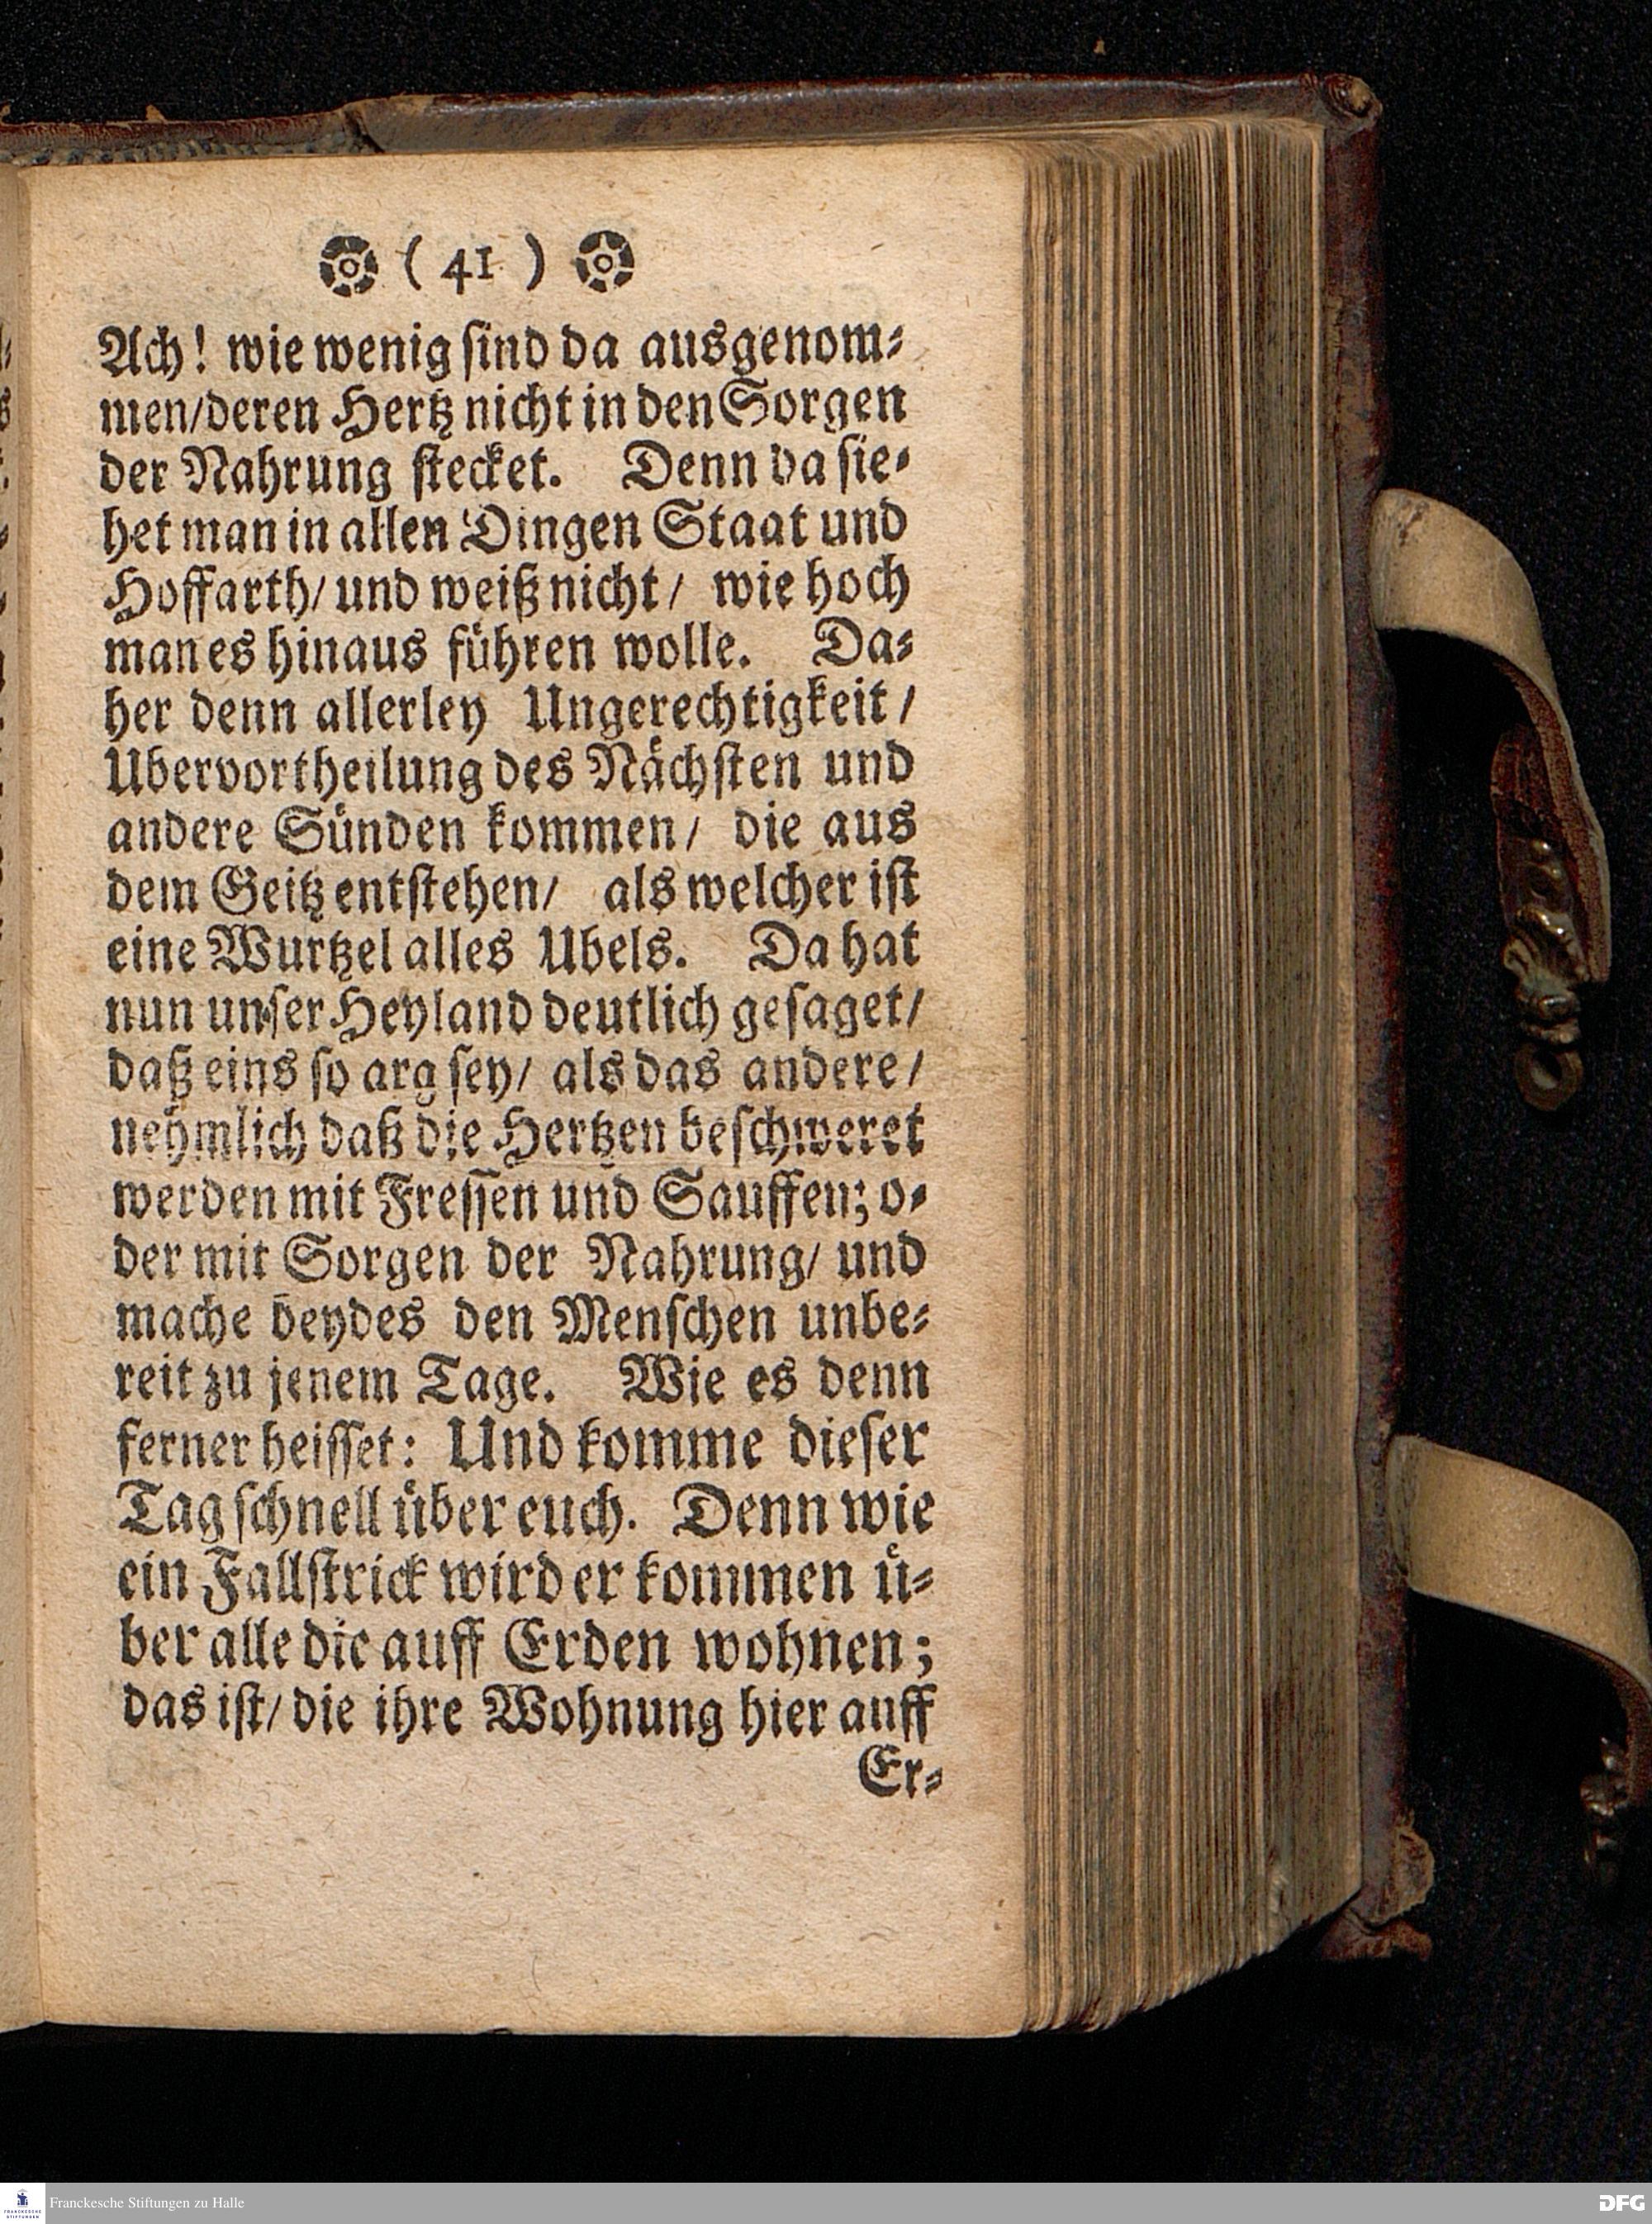 ( 41 )
Ach! wie wenig ſind da ausgenom⸗
men/deren Hertz nicht in den Sorgen
der Nahrung ſtecket. Denn da ſie⸗
het man in allen Dingen Staat und
Hoffarth/ und weiß nicht/ wie hoch
man es hinaus führen wolle. Da⸗
her denn allerley Ungerechtigkeit/
Ubervortheilung des Nächſten und
andere Sünden kommen/ die aus
dem Geitz entſtehen/ als welcher iſt
eine Wurtzel alles Ubels. Da hat
nun unſer Heyland deutlich geſaget/
daß eins ſo arg ſey/ als das andere/
nehmlich daß die Hertzen beſchweret
werden mit Freſſen und Sauffen; o⸗
der mit Sorgen der Nahrung/ und
mache beydes den Menſchen unbe⸗
reit zu jenem Tage. Wie es denn
ferner heiſſet: Und komme dieſer
Tag ſchnell über euch. Denn wie
ein Fallſtrick wird er kommen ü⸗
ber alle die auff Erden wohnen;
das iſt/ die ihre Wohnung hier auff
Er⸗
FRANCKESCHE STIFTUNGEN
Franckesche Stiftungen zu Halle
DFG